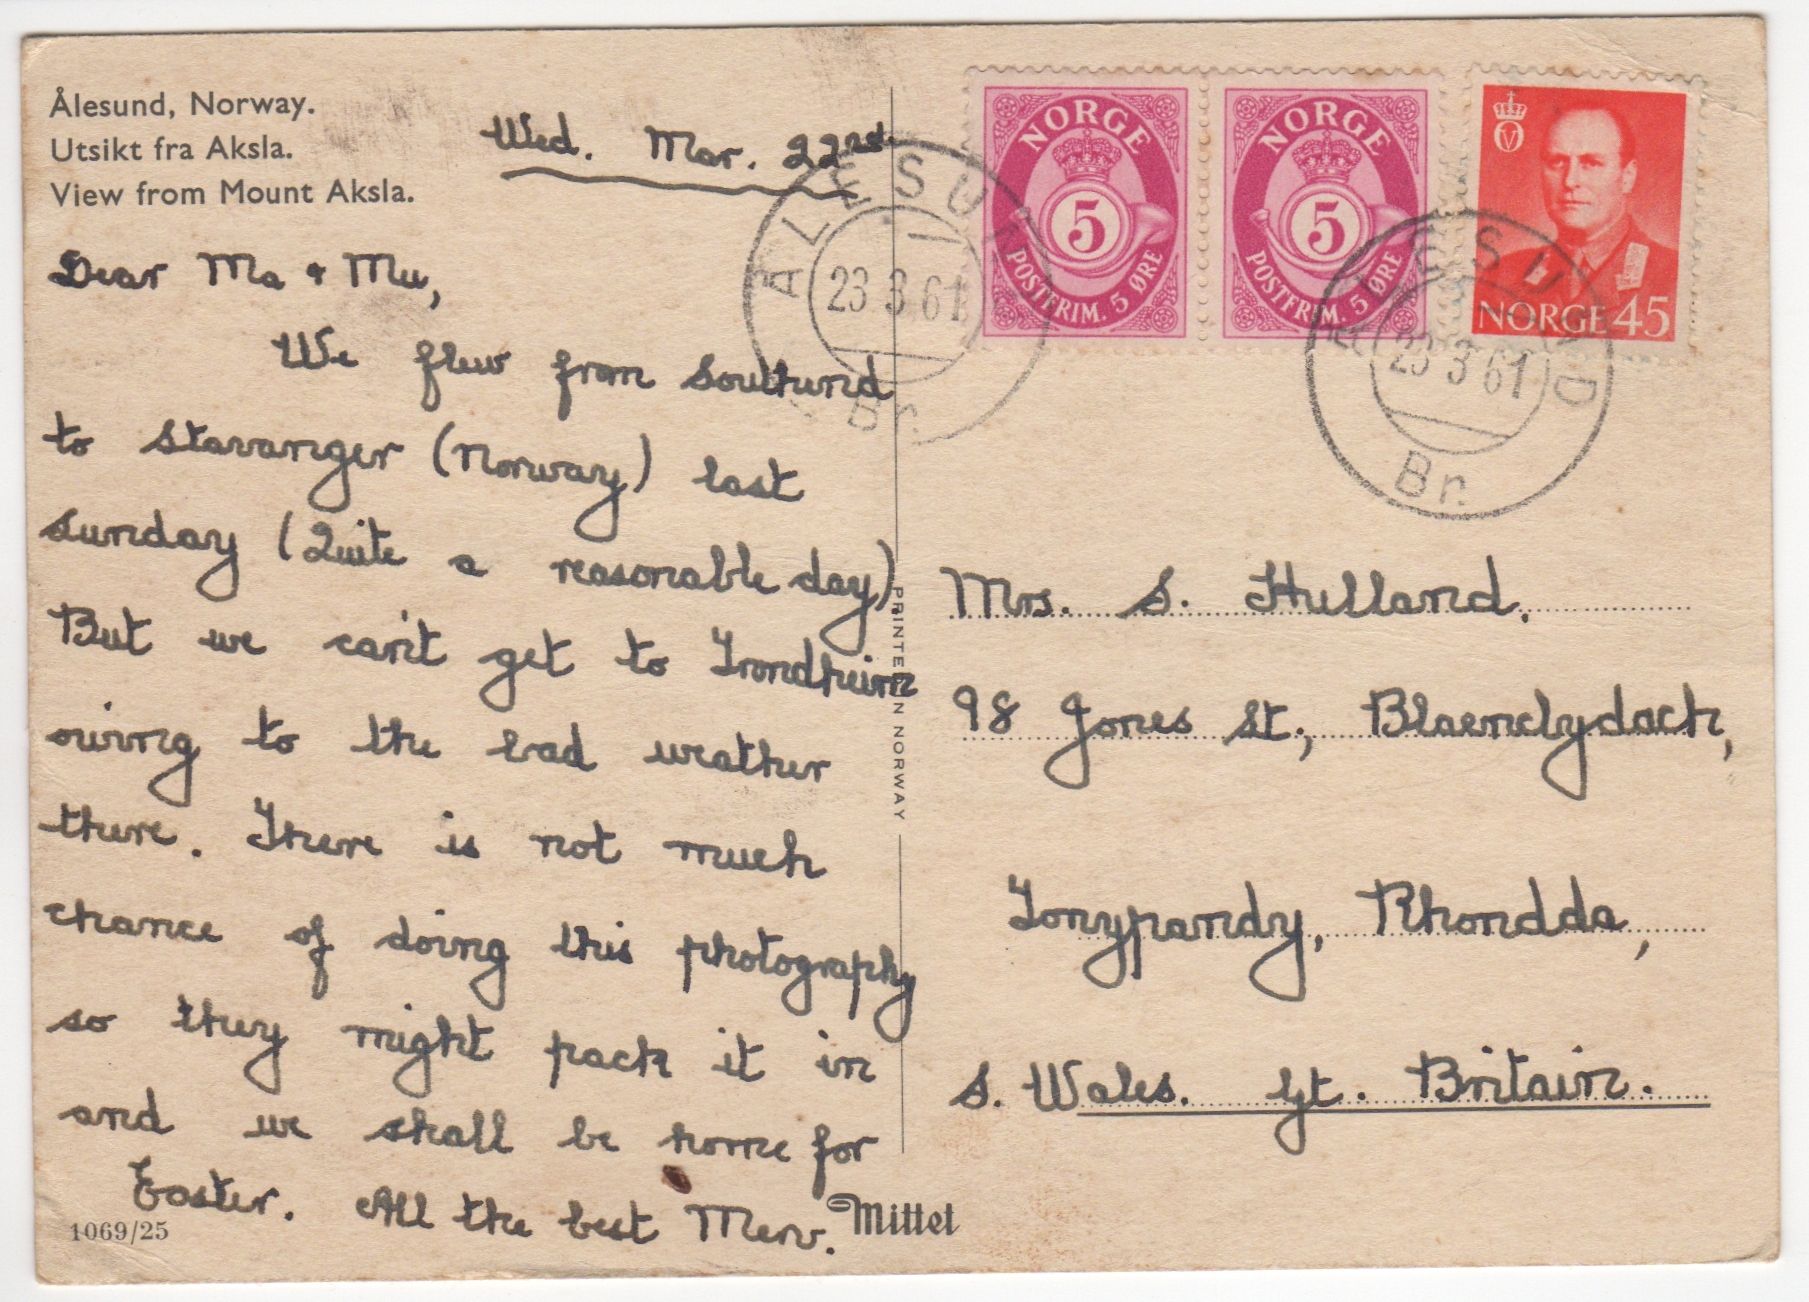 Ålesund, Norway.
Utsikt fra Aksla.
View from Mount Aksla.
Wed. Mar. 22nd
Dear Ma + Mu,
We flew from Southend
to Stavanger (Norway) last
Sunday (Quite a reasonable day)
But we can't get to Trondheim
owing to the bad weather
there. There is not much
chance of doing this photography
so they might pack it in
and we shall be home for
Easter. All the best Merv.
1069/25
Mittet
PRINTED IN NORWAY
NORGE
5
POSTFRIM. 5 ØRE
NORGE
5
POSTFRIM. 5 ØRE
V
NORGE 45
ÅLESUND
23 3 61
Br.
ÅLESUND
23 3 61
Br.
Mrs. S. Hulland.
98 Jones St., Blaenclydach,
Tonypandy, Rhondda,
S. Wales. Gt. Britain.